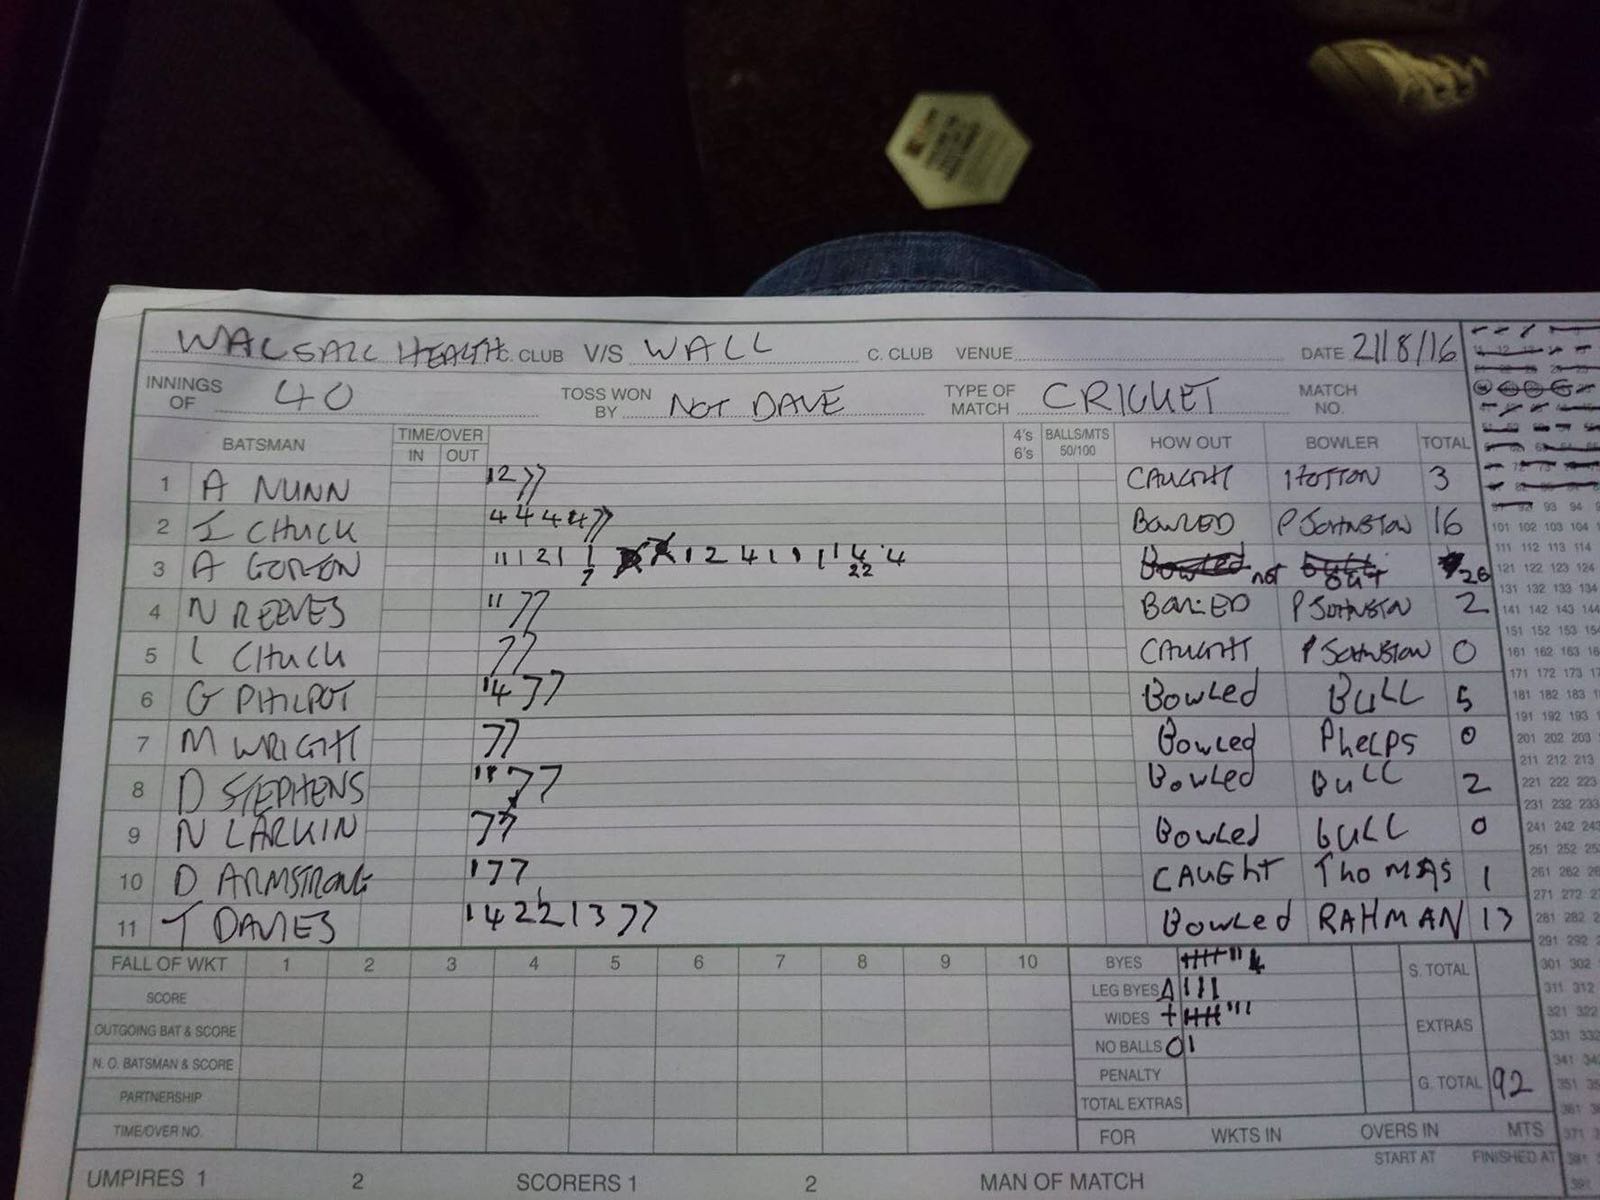 WALSALL HEALTH C. CLUB V/S WALL C. CLUB VENUE DATE 21/8/16
INNINGS OF 40 TOSS WON BY NOT DAVE TYPE OF MATCH CRICKET MATCH NO.
BATSMAN TIME/OVER IN OUT 4's 6's BALLS/MTS 50/100 HOW OUT BOWLER TOTAL
1 A NUNN 12 CAUGHT HOTTON 3
2 I CHUCK 4444 BOWLED P JOHNSTON 16
3 A GORTON not out 26
4 N REEVES 11 BOWLED P JOHNSTON 2
5 L CHUCK CAUGHT P JOHNSTON 0
6 G PHILPOT 14 Bowled BULL 5
7 M WRIGHT Bowled PHELPS 0
8 D STEPHENS 11 Bowled BULL 2
9 N LARKIN Bowled BULL 0
10 D ARMSTRONG 1 CAUGHT THOMAS 1
11 T DAVIES 142213 Bowled RAHMAN 13
FALL OF WKT 1 2 3 4 5 6 7 8 9 10 BYES S. TOTAL
SCORE LEG BYES
OUTGOING BAT & SCORE WIDES EXTRAS
N. O. BATSMAN & SCORE NO BALLS
PENALTY G. TOTAL 92
PARTNERSHIP TOTAL EXTRAS
TIME/OVER NO. FOR WKTS IN OVERS IN MTS
START AT FINISHED AT
UMPIRES 1 2 SCORERS 1 2 MAN OF MATCH
93 94
101 102 103 104
111 112 113 114
121 122 123 124
131 132 133 134
141 142 143 144
151 152 153
161 162 163
171 172 173
181 182 183
191 192 193
201 202 203
211 212 213
221 222 223
231 232 233
241 242
251 252
261 262
271 272
281 282
291 292
301 302
311 312
321 322
331
341
351